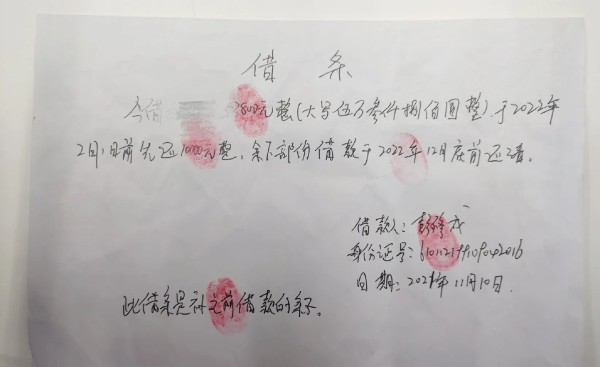 借条
今借 53800元整(大写伍万叁仟捌佰圆整).于2022年
2月1日前先还10000元整,余下部份借款于2022年12月底前还清。
借款人:
身份证号:
日期:2021年11月10日.
此借条是补之前借款的条子。